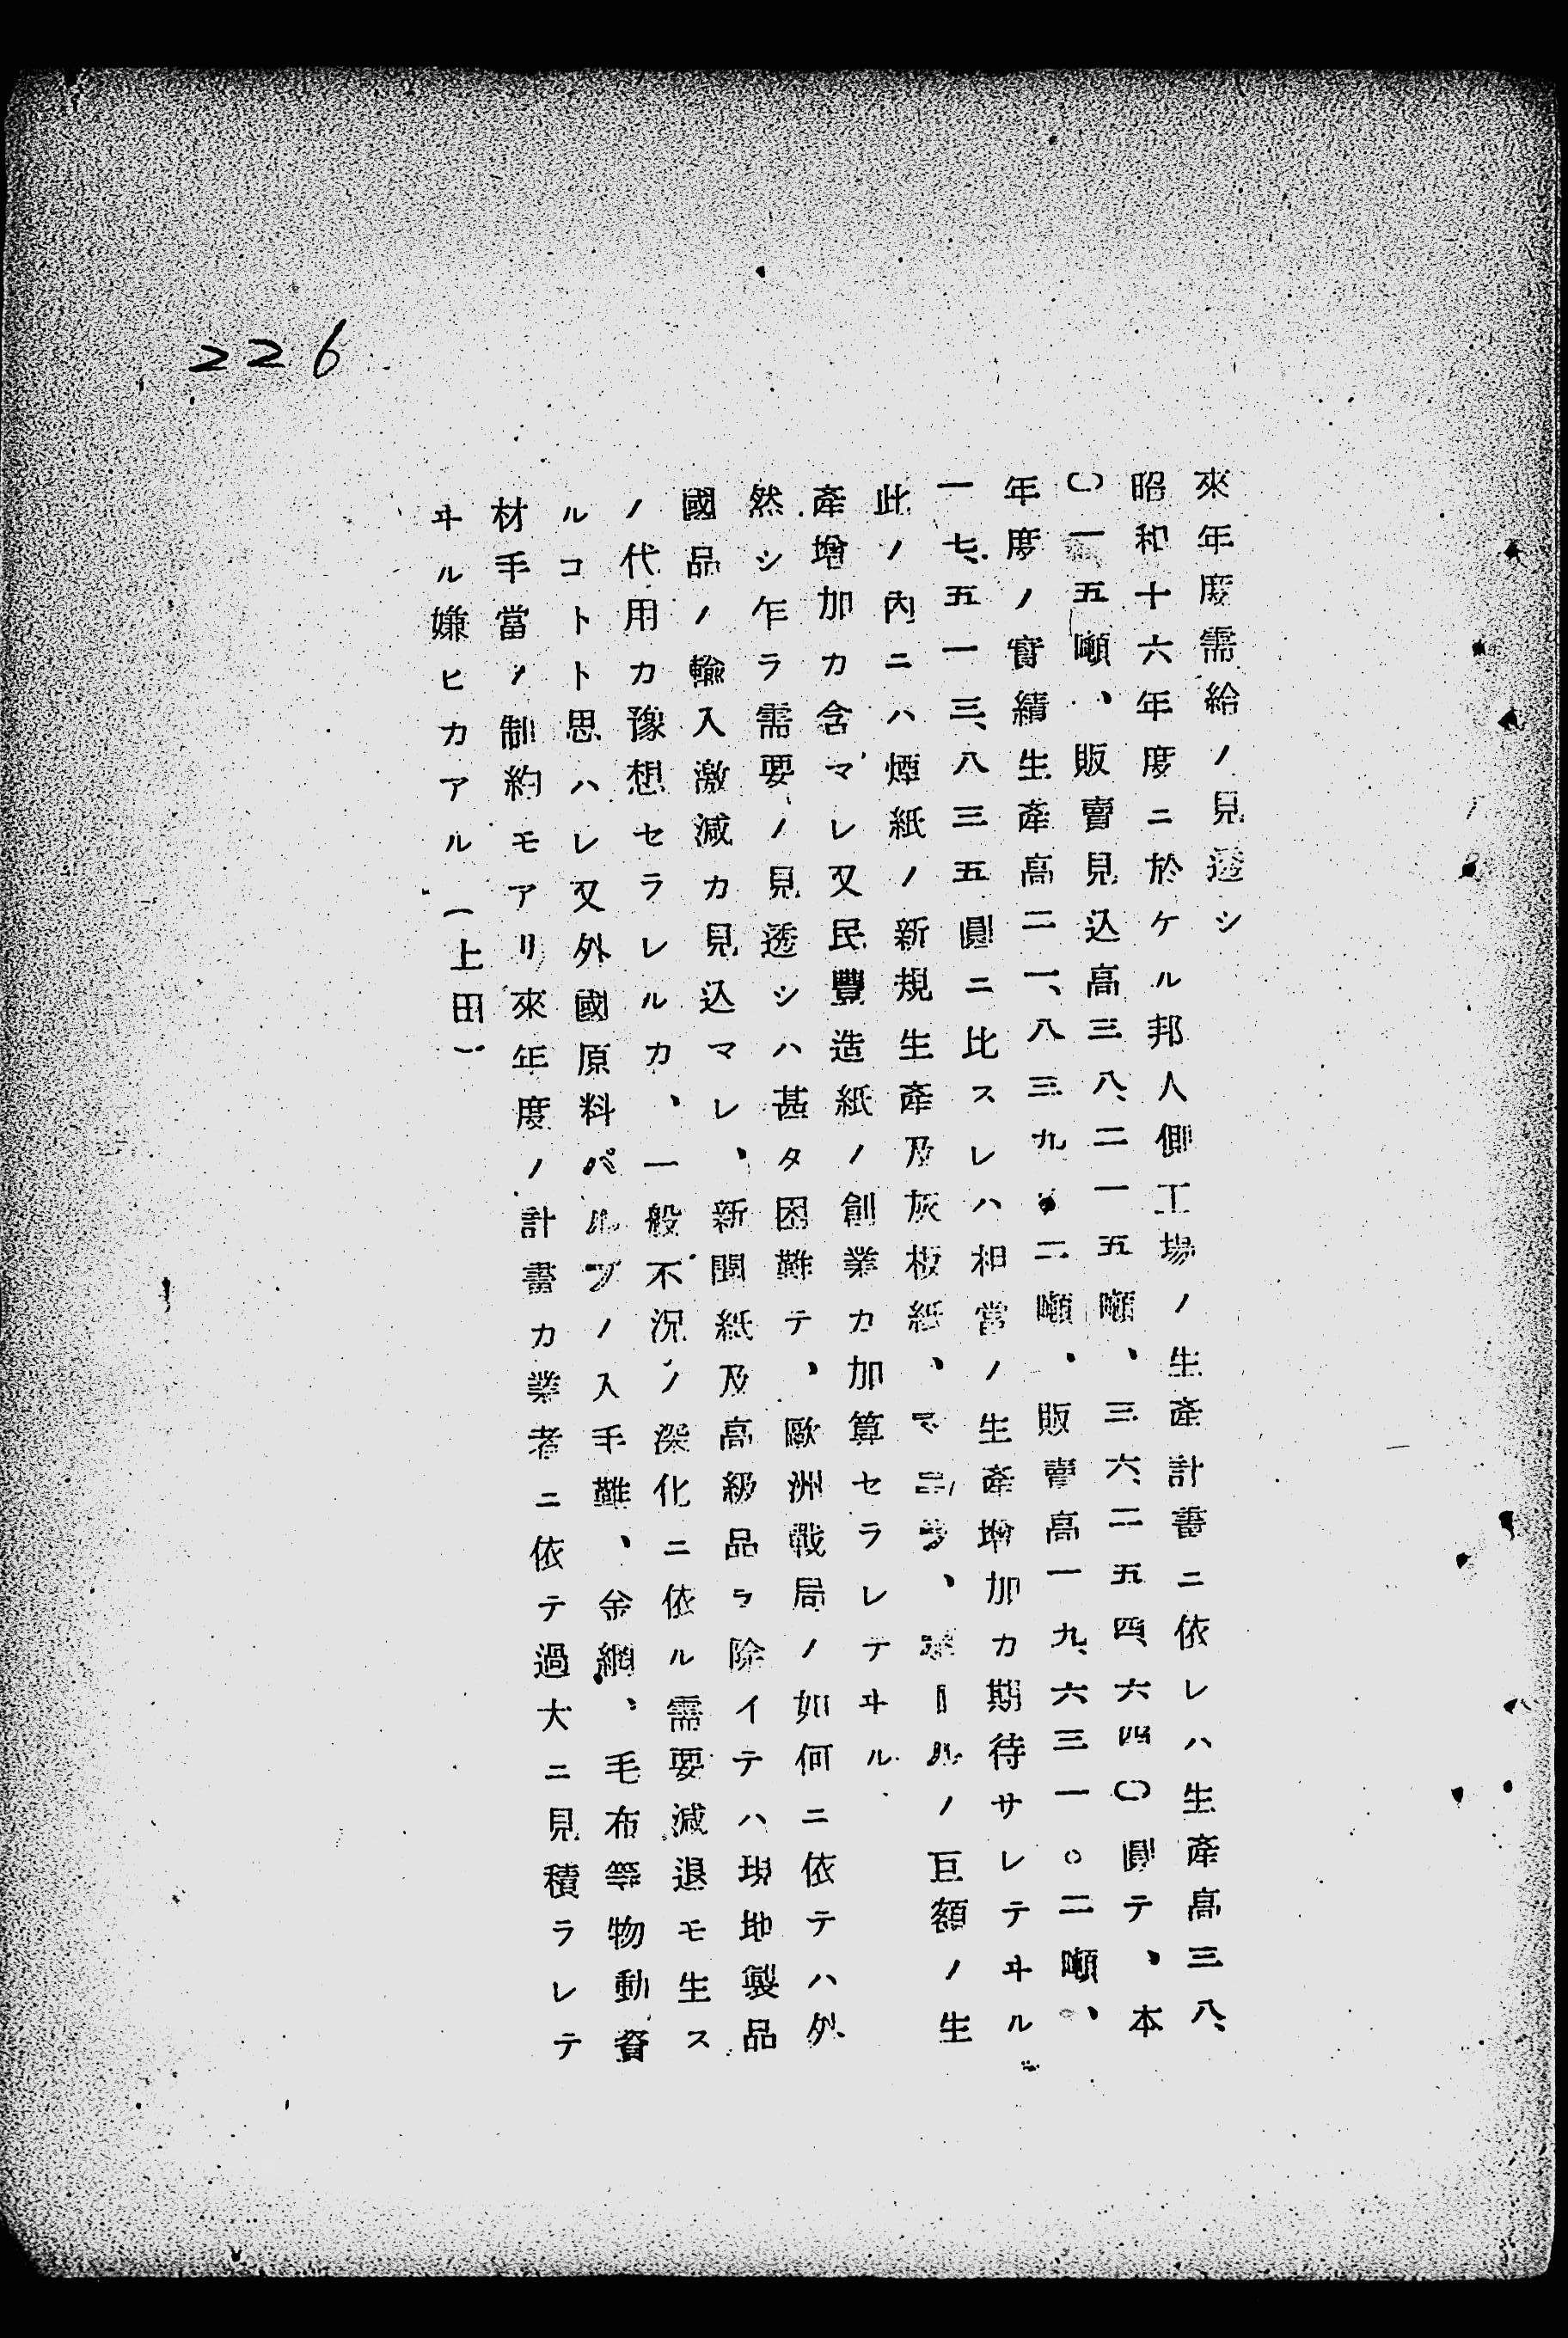 226
來年度需給ノ見透シ
昭和十六年度ニ於ケル邦人側工場ノ生產計畫ニ依レハ生產高三八、
〇一五噸、販賣見込高三八、二一五噸、三六、二五四、六四〇圓テ、本
年度ノ實績生產高二一、八三九・二噸、販賣高一九、六三一〇二噸、
一七、五一三、八三五圓ニ比スレハ相當ノ生產增加カ期待サレテヰル
此ノ內ニハ煙紙ノ新規生產及灰板紙、マニラ、ボールノ巨額ノ生
產增加カ含マレ又民豐造紙ノ創業カ加算セラレテヰル
然シ乍ラ需要ノ見透シハ甚タ困難テ、歐洲戰局ノ如何ニ依テハ外
國品ノ輸入激減カ見込マレ、新聞紙及高級品ヲ除イテハ現地製品
ノ代用カ豫想セラレルカ、一般不況ノ深化ニ依ル需要減退モ生ス
ルコトト思ハレ又外國原料パルプノ入手難、金網、毛布等物動資
材手當ノ制約モアリ來年度ノ計畫カ業者ニ依テ過大ニ見積ラレテ
ヰル嫌ヒカアル(上田)